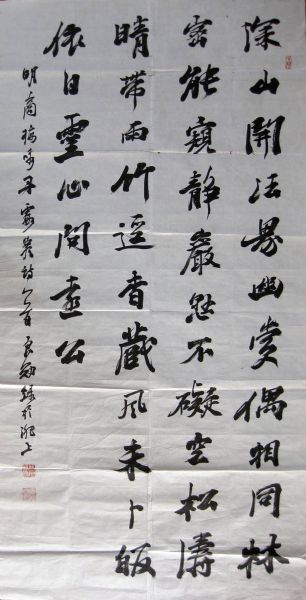 深山開法界幽賞偶相同林
密能窺靜巖懸不礙空松濤
晴帶雨竹逕香藏風未卜皈
依日靈心問遠公
明商梅詩一首錄於上